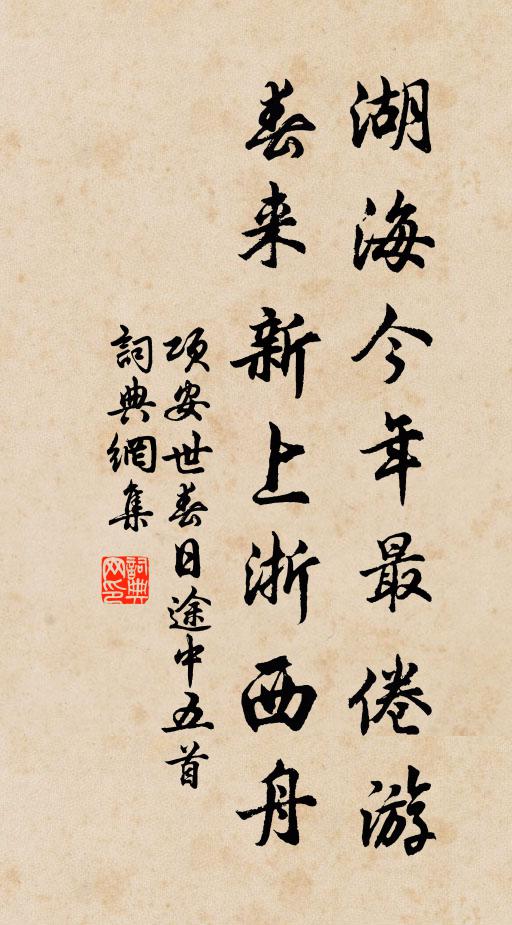 湖海今年最倦游
春来新上浙西舟
项安世春日途中五首
詞典網集
詞典网印